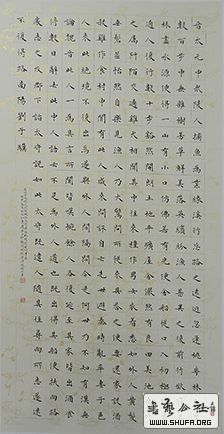 晉太元中武陵人捕魚為業緣溪行忘路之遠近忽逢桃花林夾岸
數百步中無雜樹芳草鮮美落英繽紛漁人甚異之復前行欲窮其
林林盡水源便得一山山有小口彷彿若有光便捨船從口入初極狹纔
通人復行數十步豁然開朗土地平曠屋舍儼然有良田美池桑竹
之屬阡陌交通雞犬相聞其中往來種作男女衣著悉如外人黃髮
垂髫並怡然自樂見漁人乃大驚問所從來具答之便要還家設酒
殺雞作食村中聞有此人咸來問訊自云先世避秦時亂率妻子邑
人來此絕境不復出焉遂與外人間隔問今是何世乃不知有漢無
論魏晉此人一一為具言所聞皆歎惋餘人各復延至其家皆出酒食
停數日辭去此中人語云不足為外人道也既出得其船便扶向路
處處志之及郡下詣太守說如此太守即遣人隨其往尋向所志遂迷
不復得路南陽劉子驥
書藝公社
WWW.SHUFA.ORG